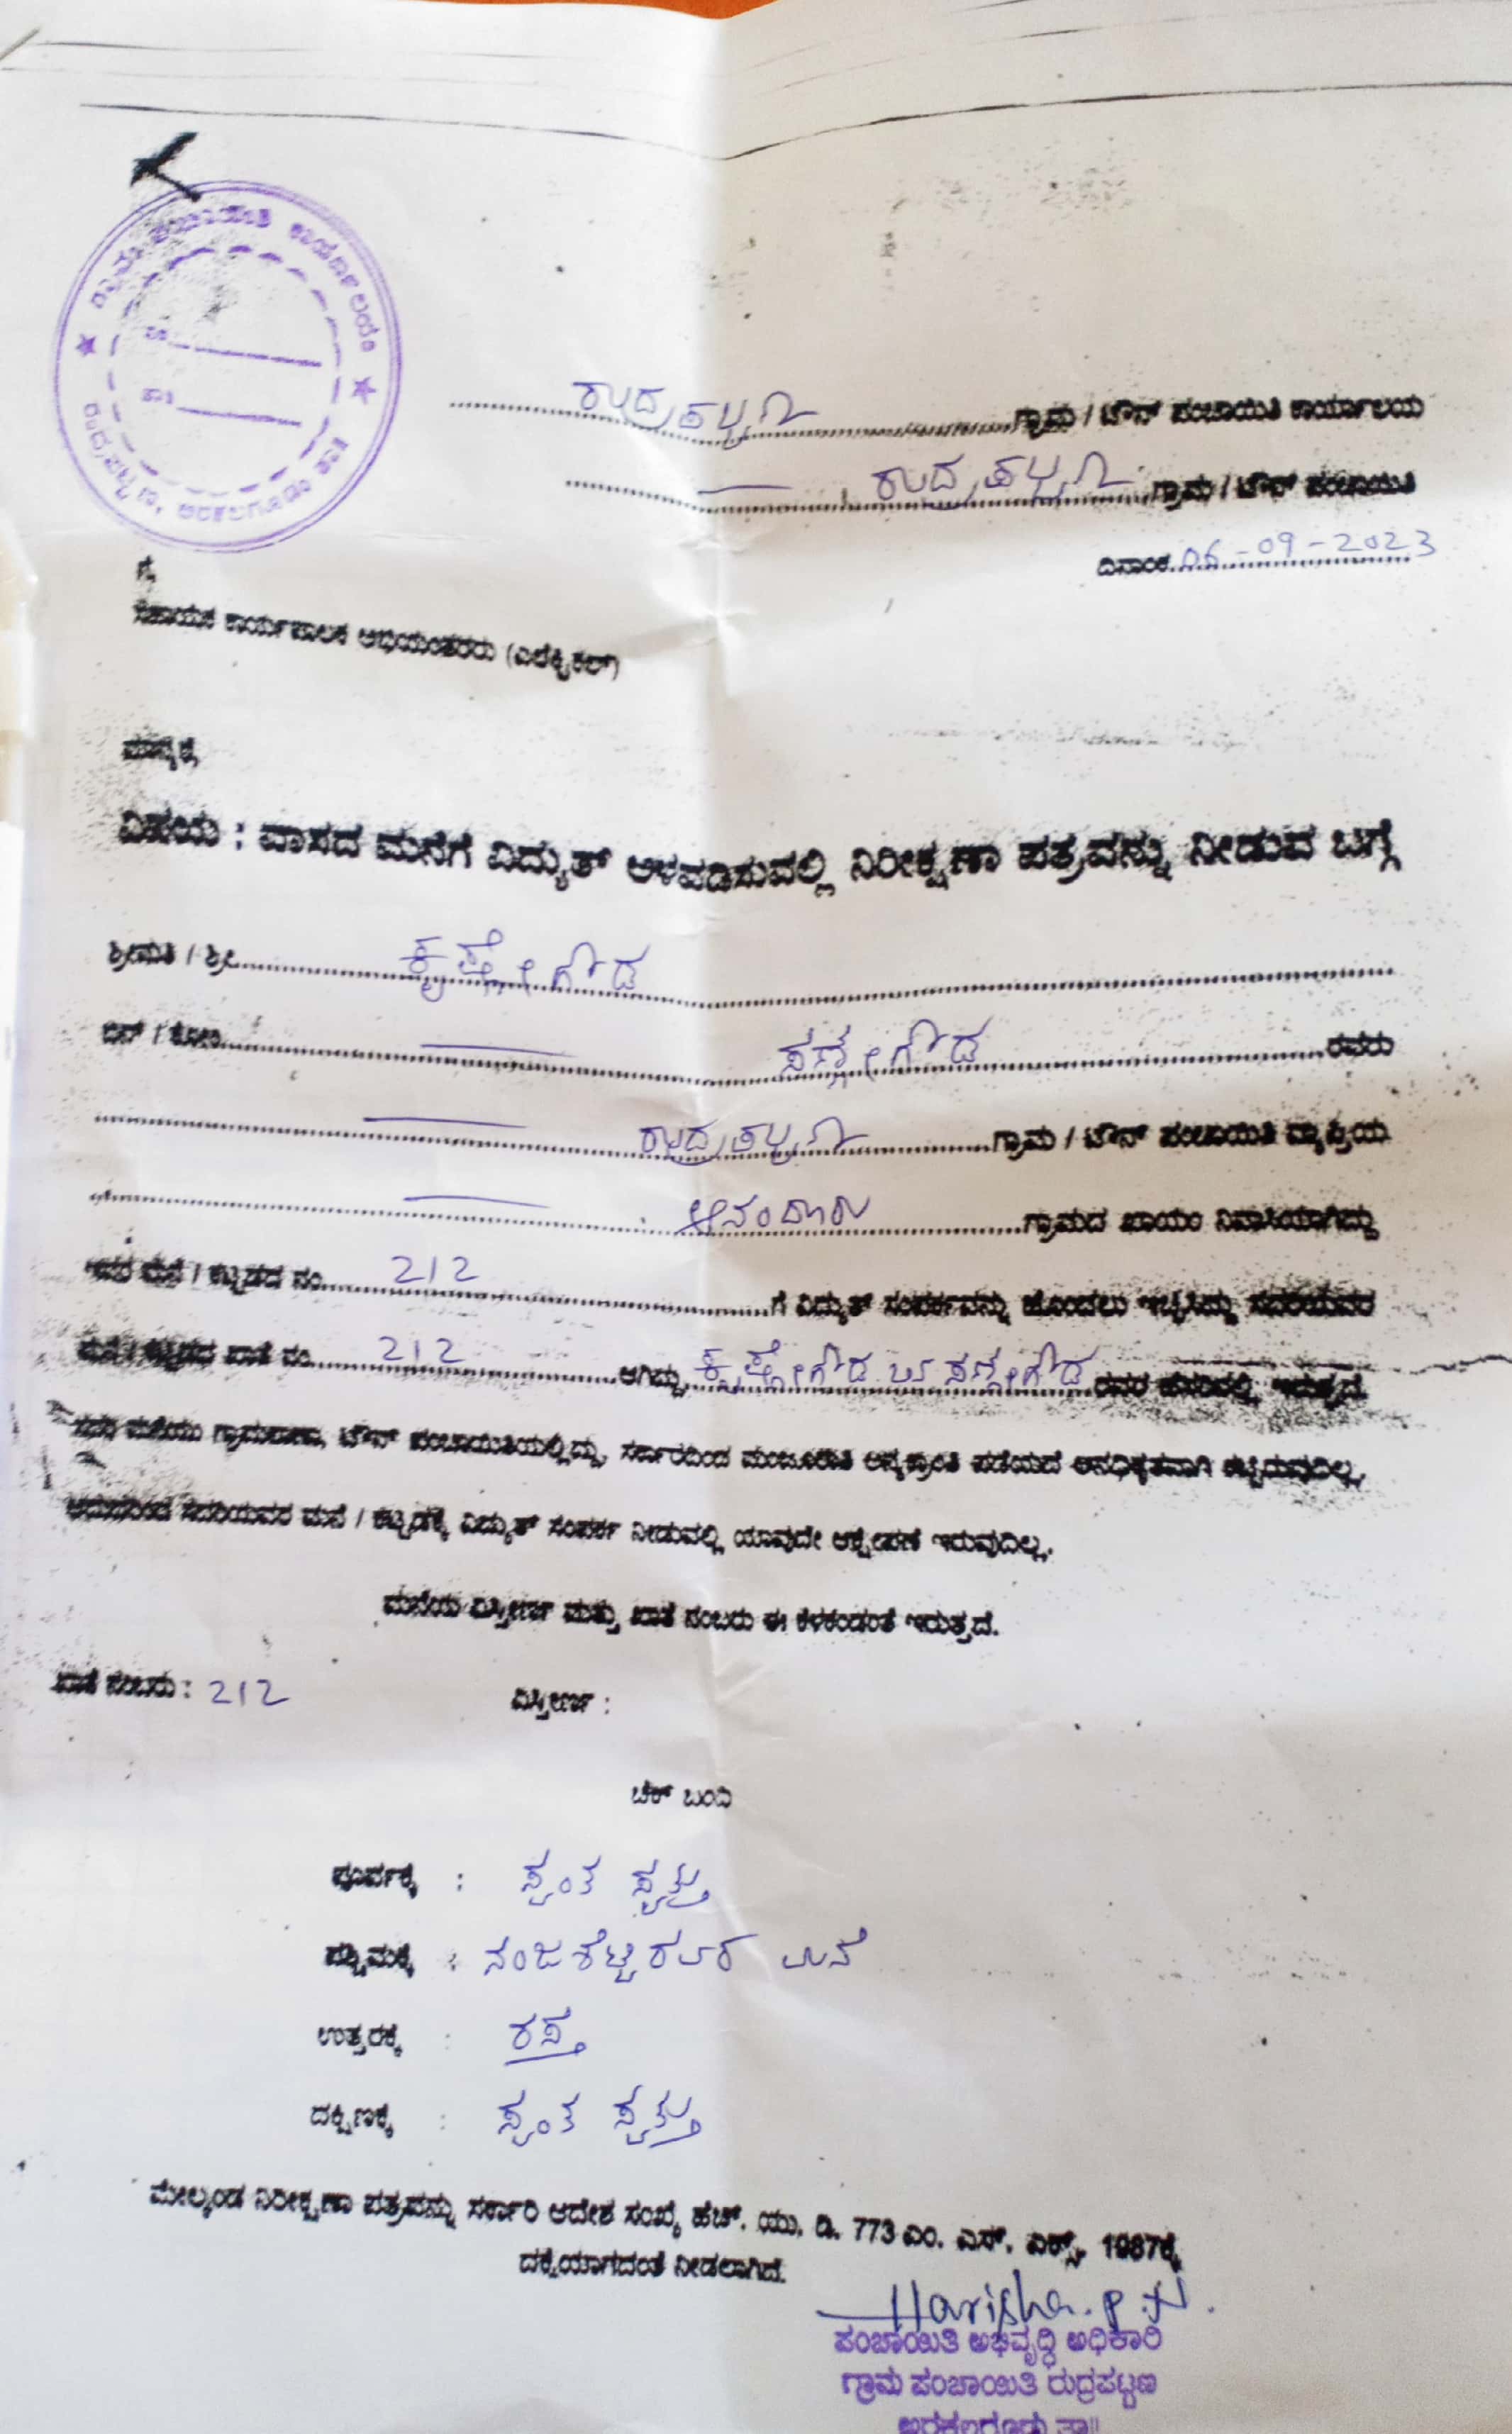 ಗ್ರಾಮ ಪಂಚಾಯಿತಿ ಕಾರ್ಯಾಲಯ
ರುದ್ರಪಟ್ಟಣ, ಅರಕಲಗೂಡು ತಾ॥
ರುದ್ರಪಟ್ಟಣ ಗ್ರಾಮ / ಟೌನ್ ಪಂಚಾಯಿತಿ ಕಾರ್ಯಾಲಯ
— ರುದ್ರಪಟ್ಟಣ ಗ್ರಾಮ / ಟೌನ್ ಪಂಚಾಯಿತಿ
ದಿನಾಂಕ 06-09-2023
ಗೆ,
ಸಹಾಯಕ ಕಾರ್ಯಪಾಲಕ ಅಭಿಯಂತರರು (ಎಲೆಕ್ಟ್ರಿಕಲ್)
ಮಾನ್ಯರೆ,
ವಿಷಯ : ವಾಸದ ಮನೆಗೆ ವಿದ್ಯುತ್ ಅಳವಡಿಸುವಲ್ಲಿ ನಿರೀಕ್ಷಣಾ ಪತ್ರವನ್ನು ನೀಡುವ ಬಗ್ಗೆ
ಶ್ರೀಮತಿ / ಶ್ರೀ ಕೃಷ್ಣೇಗೌಡ
ಬಿನ್ / ಕೋಂ — ಸಣ್ಣೇಗೌಡ ರವರು
— ರುದ್ರಪಟ್ಟಣ ಗ್ರಾಮ / ಟೌನ್ ಪಂಚಾಯಿತಿ ವ್ಯಾಪ್ತಿಯ
— ಗ್ರಾಮದ ಖಾಯಂ ನಿವಾಸಿಯಾಗಿದ್ದು
ಇವರ ಮನೆ / ಕಟ್ಟಡದ ನಂ 212 ಗೆ ವಿದ್ಯುತ್ ಸಂಪರ್ಕವನ್ನು ಹೊಂದಲು ಇಚ್ಛಿಸಿದ್ದು ಸದರಿಯವರ
ಮನೆ / ಕಟ್ಟಡದ ಖಾತೆ ನಂ 212 ಆಗಿದ್ದು, ಕೃಷ್ಣೇಗೌಡ ಬಿನ್ ಸಣ್ಣೇಗೌಡ ರವರ ಹೆಸರಿನಲ್ಲಿ ಇರುತ್ತದೆ.
ಸದರಿ ಮನೆಯು ಗ್ರಾಮಠಾಣಾ, ಟೌನ್ ಪಂಚಾಯಿತಿಯಲ್ಲಿದ್ದು, ಸರ್ಕಾರದಿಂದ ಮಂಜೂರಾತಿ ಅನ್ಯಕ್ರಾಂತಿ ಪಡೆಯದೆ ಅನಧಿಕೃತವಾಗಿ ಕಟ್ಟಿರುವುದಿಲ್ಲ.
ಆದುದರಿಂದ ಸದರಿಯವರ ಮನೆ / ಕಟ್ಟಡಕ್ಕೆ ವಿದ್ಯುತ್ ಸಂಪರ್ಕ ನೀಡುವಲ್ಲಿ ಯಾವುದೇ ಆಕ್ಷೇಪಣೆ ಇರುವುದಿಲ್ಲ.
ಮನೆಯ ವಿಸ್ತೀರ್ಣ ಮತ್ತು ಖಾತೆ ನಂಬರು ಈ ಕೆಳಕಂಡಂತೆ ಇರುತ್ತದೆ.
ಖಾತೆ ನಂಬರು : 212 ವಿಸ್ತೀರ್ಣ :
ಚೆಕ್ ಬಂದಿ
ಪೂರ್ವಕ್ಕೆ : ಸ್ವಂತ ಸ್ವತ್ತು
ಪಶ್ಚಿಮಕ್ಕೆ : ನಂಜಶೆಟ್ಟಿರವರ ಮನೆ
ಉತ್ತರಕ್ಕೆ : ರಸ್ತೆ
ದಕ್ಷಿಣಕ್ಕೆ : ಸ್ವಂತ ಸ್ವತ್ತು
ಮೇಲ್ಕಂಡ ನಿರೀಕ್ಷಣಾ ಪತ್ರವನ್ನು ಸರ್ಕಾರಿ ಆದೇಶ ಸಂಖ್ಯೆ ಹೆಚ್. ಯು. ಡಿ. 773 ಎಂ. ಎನ್. ಎಕ್ಸ್. 1987ಕ್ಕೆ
ದಕ್ಕೆಯಾಗದಂತೆ ನೀಡಲಾಗಿದೆ.
Harisha.P.N.
ಪಂಚಾಯಿತಿ ಅಭಿವೃದ್ಧಿ ಅಧಿಕಾರಿ
ಗ್ರಾಮ ಪಂಚಾಯಿತಿ ರುದ್ರಪಟ್ಟಣ
ಅರಕಲಗೂಡು ತಾ॥